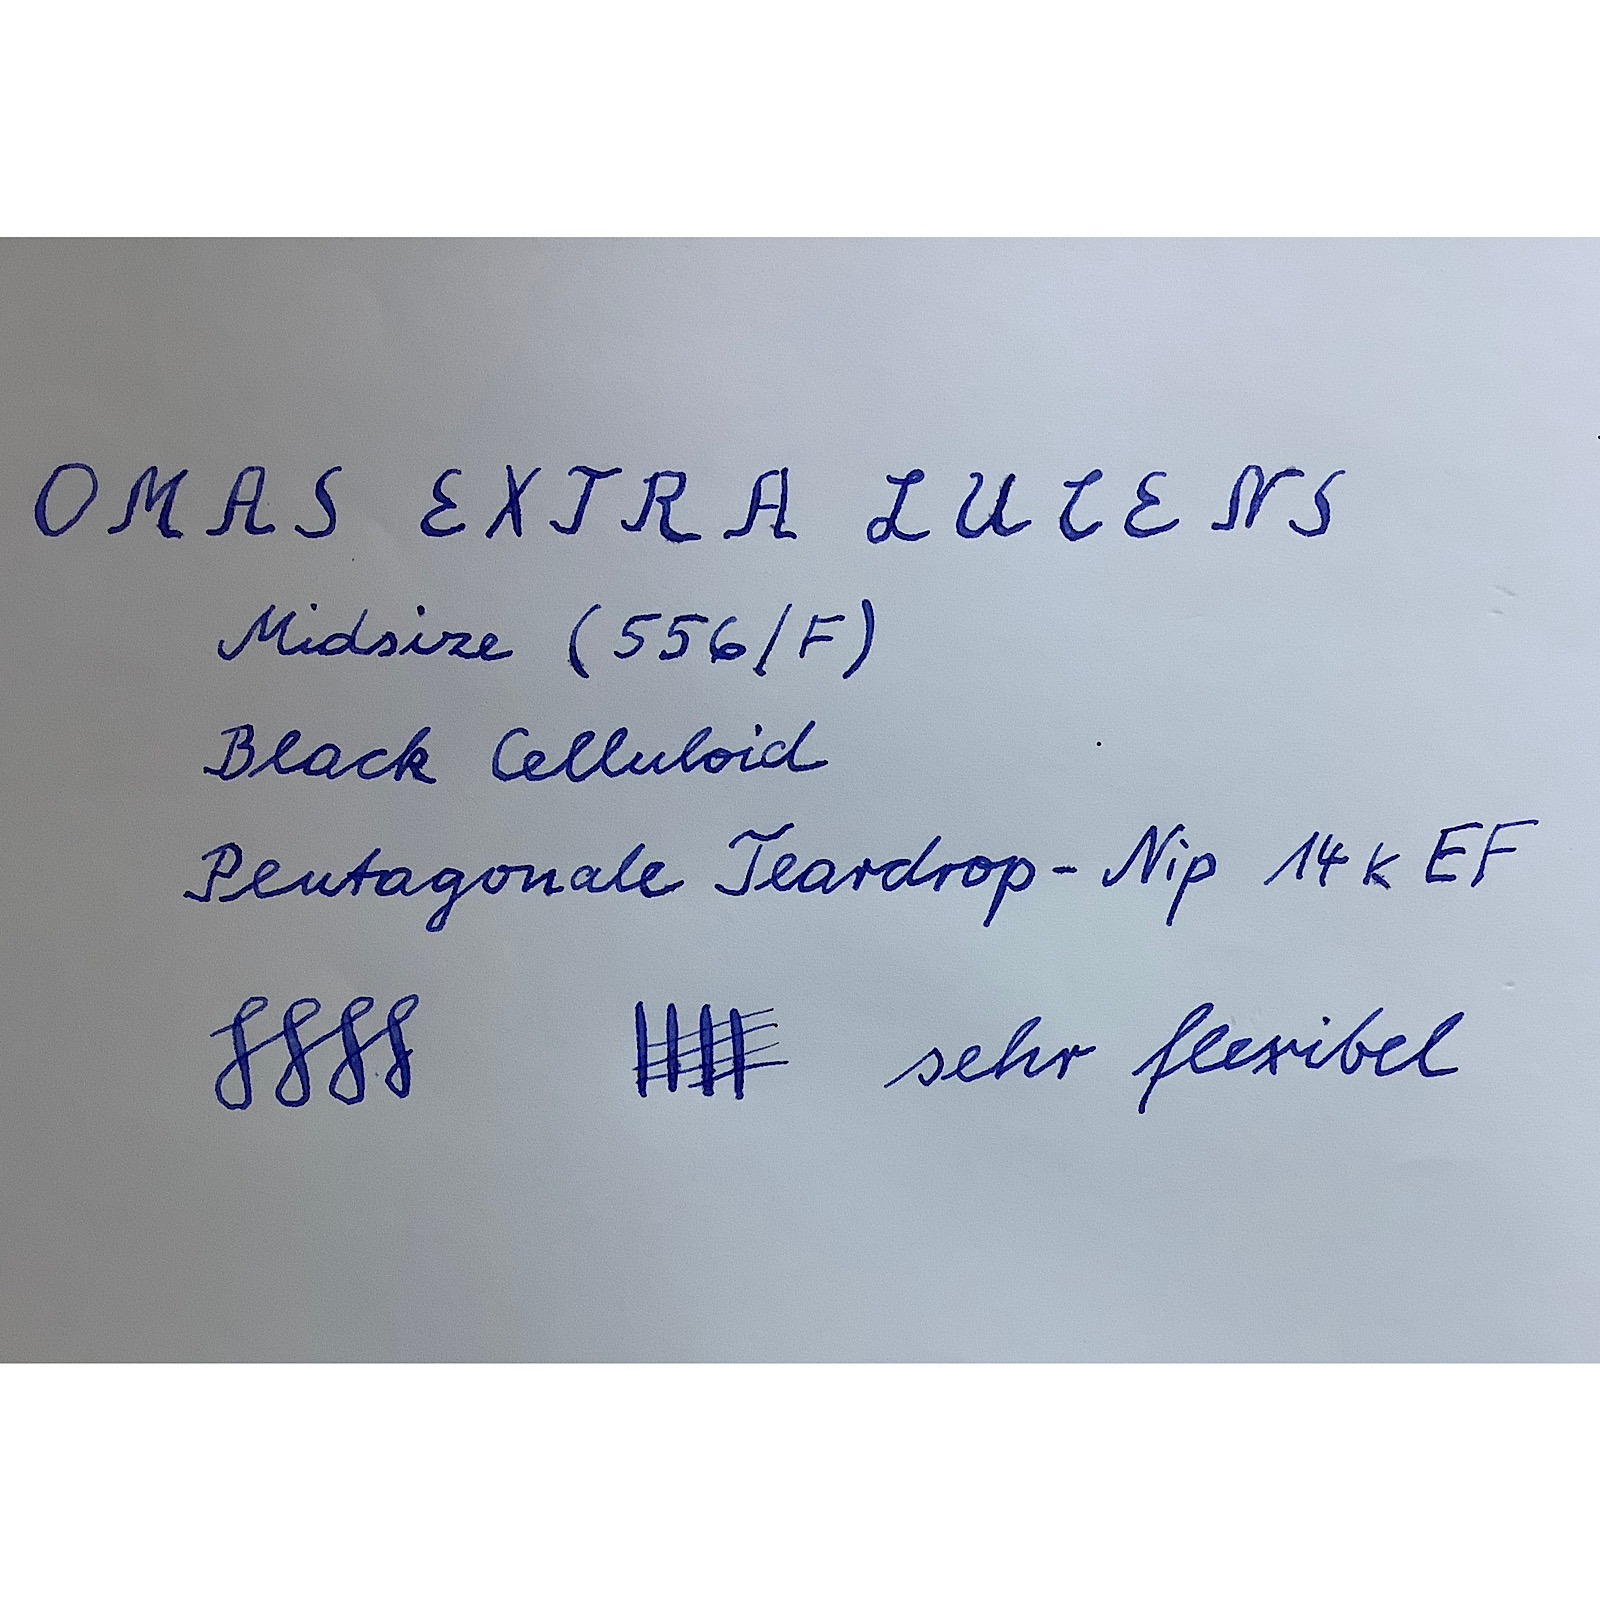 OMAS EXTRA LUCENS
Midsize (556/F)
Black Celluloid
Pentagonale Teardrop-Nip 14k EF
sehr flexibel